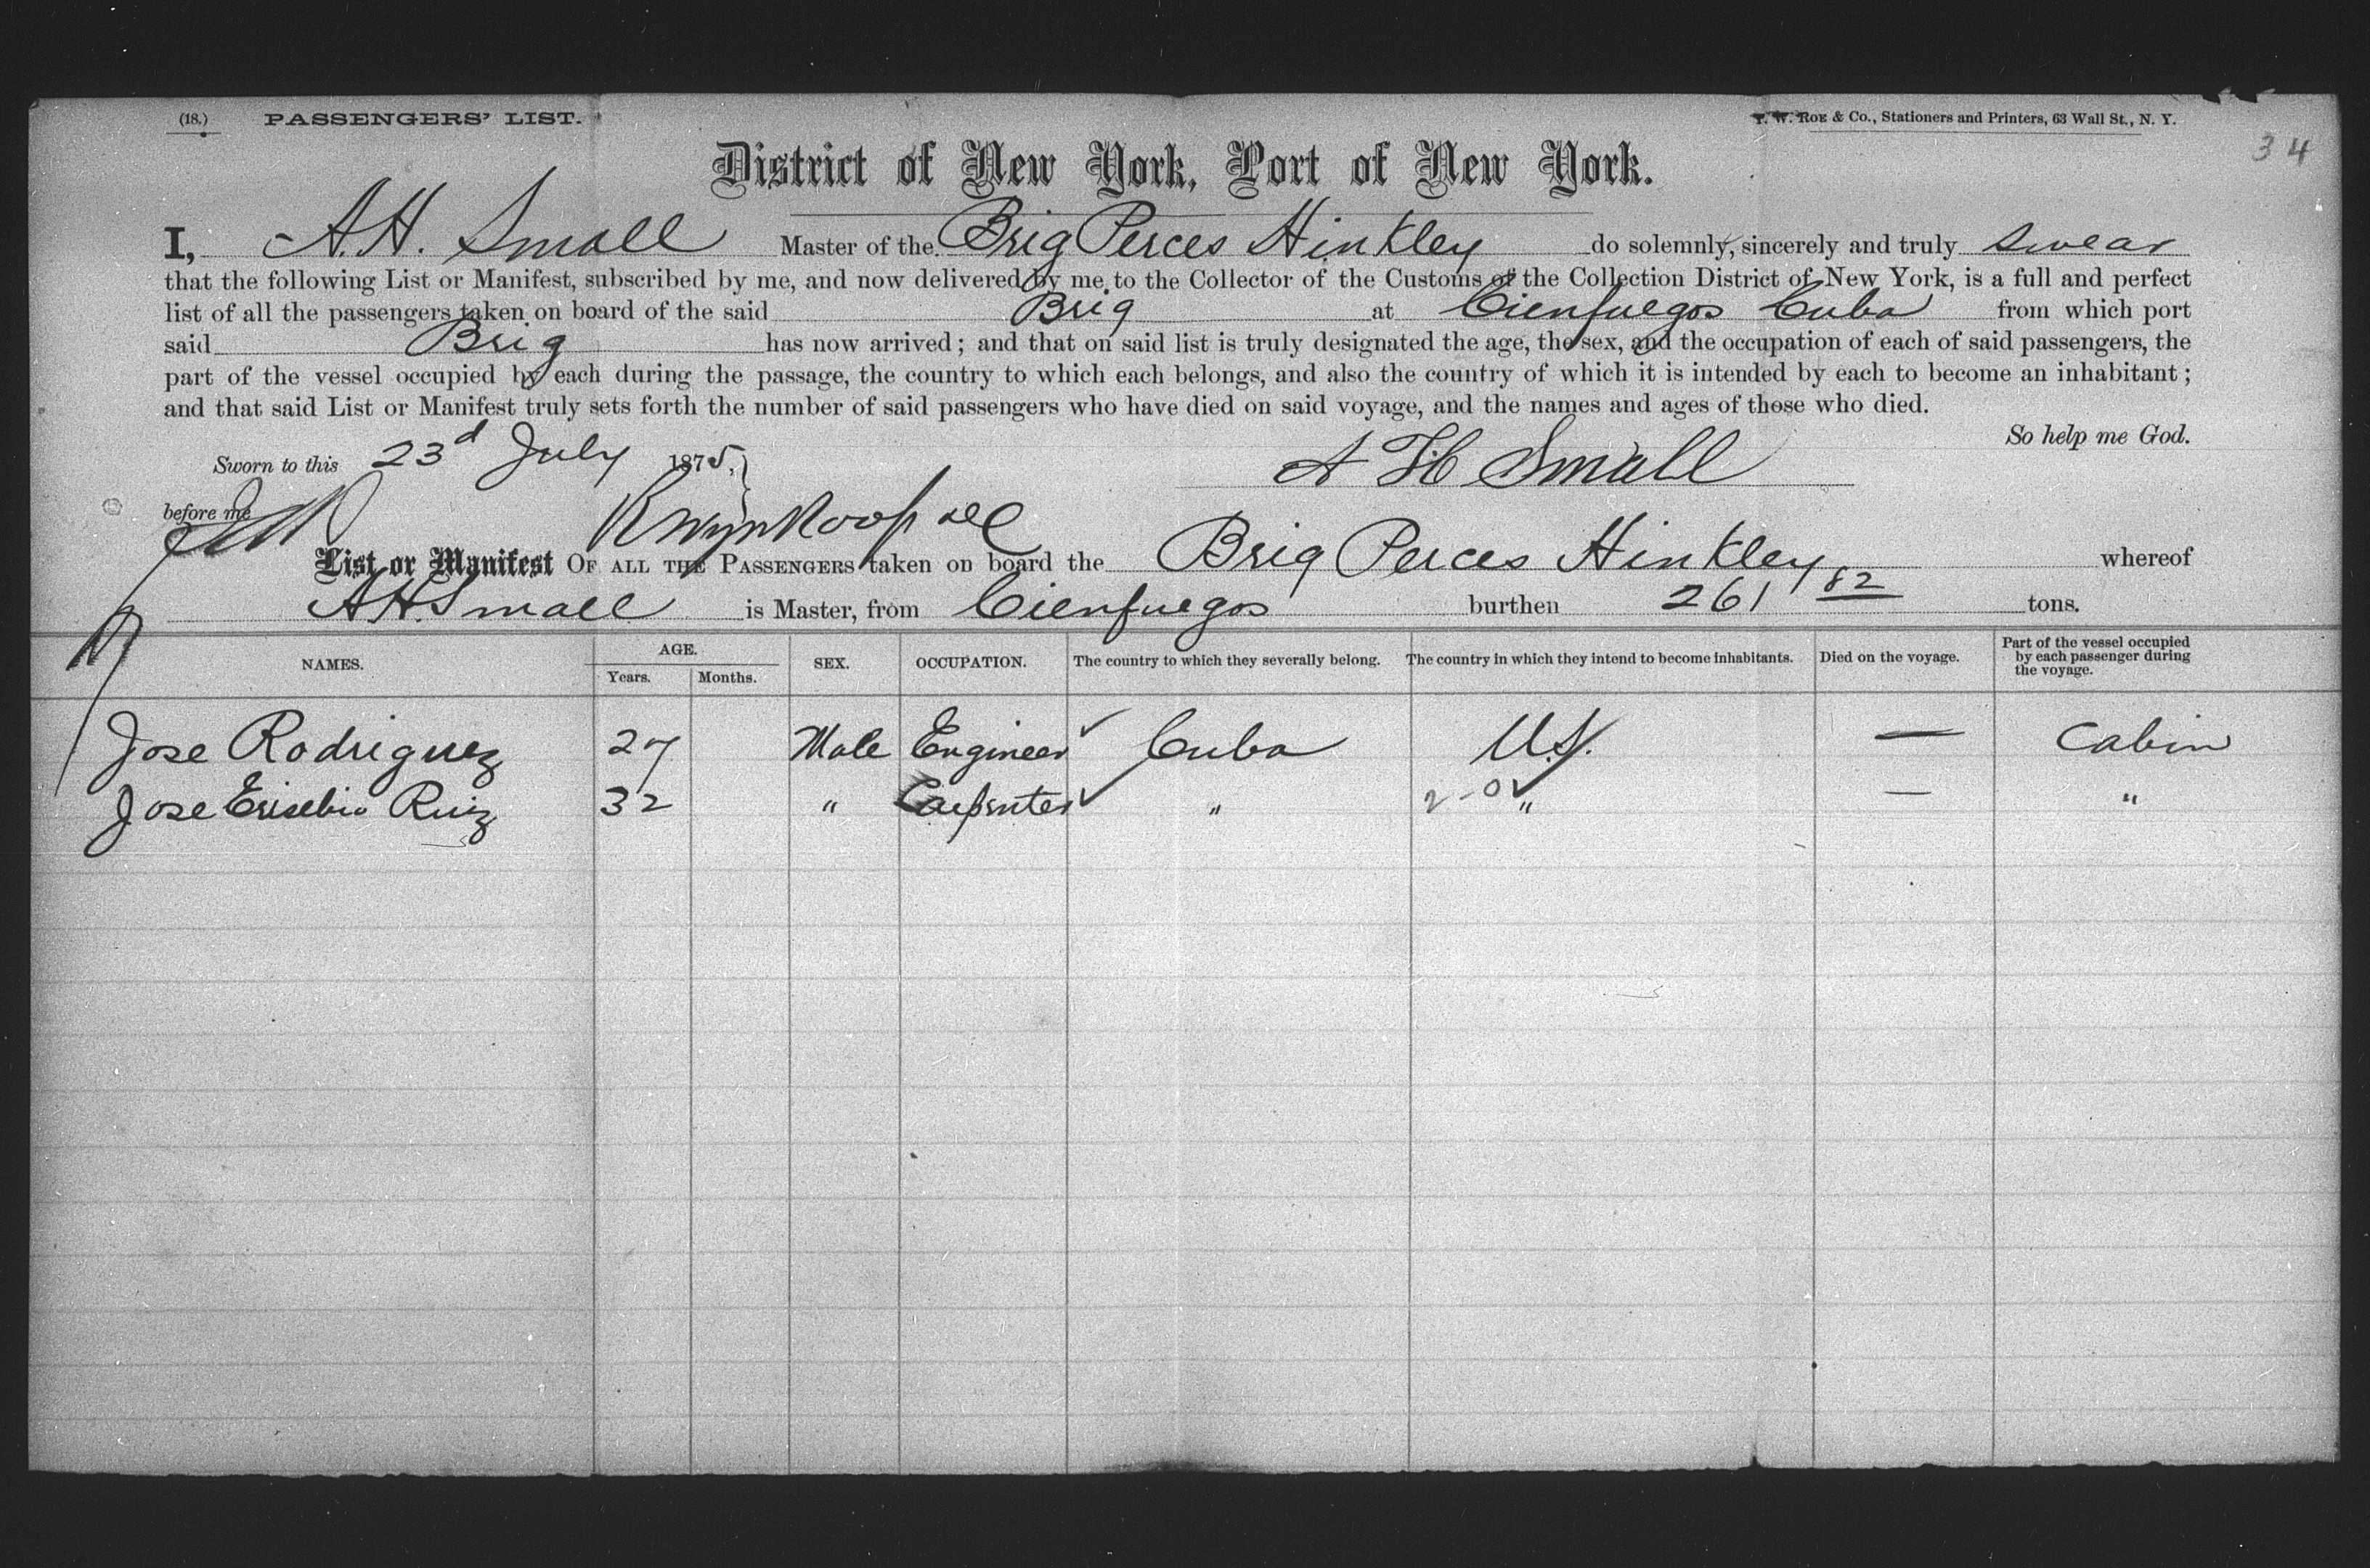 (18.) PASSENGERS' LIST.
T. W. ROE & Co., Stationers and Printers, 63 Wall St., N. Y.
34
District of New York, Port of New York.
I, A.H. Small Master of the Brig Perces Hinkley do solemnly, sincerely and truly swear
that the following List or Manifest, subscribed by me, and now delivered by me to the Collector of the Customs of the Collection District of New York, is a full and perfect
list of all the passengers taken on board of the said Brig at Cienfuegos Cuba from which port
said Brig has now arrived; and that on said list is truly designated the age, the sex, and the occupation of each of said passengers, the
part of the vessel occupied by each during the passage, the country to which each belongs, and also the country of which it is intended by each to become an inhabitant;
and that said List or Manifest truly sets forth the number of said passengers who have died on said voyage, and the names and ages of those who died.
So help me God.
Sworn to this 23d July 1875, A H Small
before me Wynkoop
List or Manifest OF ALL THE PASSENGERS taken on board the Brig Perces Hinkley whereof
A.H. Small is Master, from Cienfuegos burthen 261 82 tons.
NAMES. AGE. Years. Months. SEX. OCCUPATION. The country to which they severally belong. The country in which they intend to become inhabitants. Died on the voyage. Part of the vessel occupied by each passenger during the voyage.
Jose Rodriguez 27 Male Engineer Cuba U.S. — Cabin
Jose Erisebio Ruiz 32 " Carpenter " 2-0 " — "